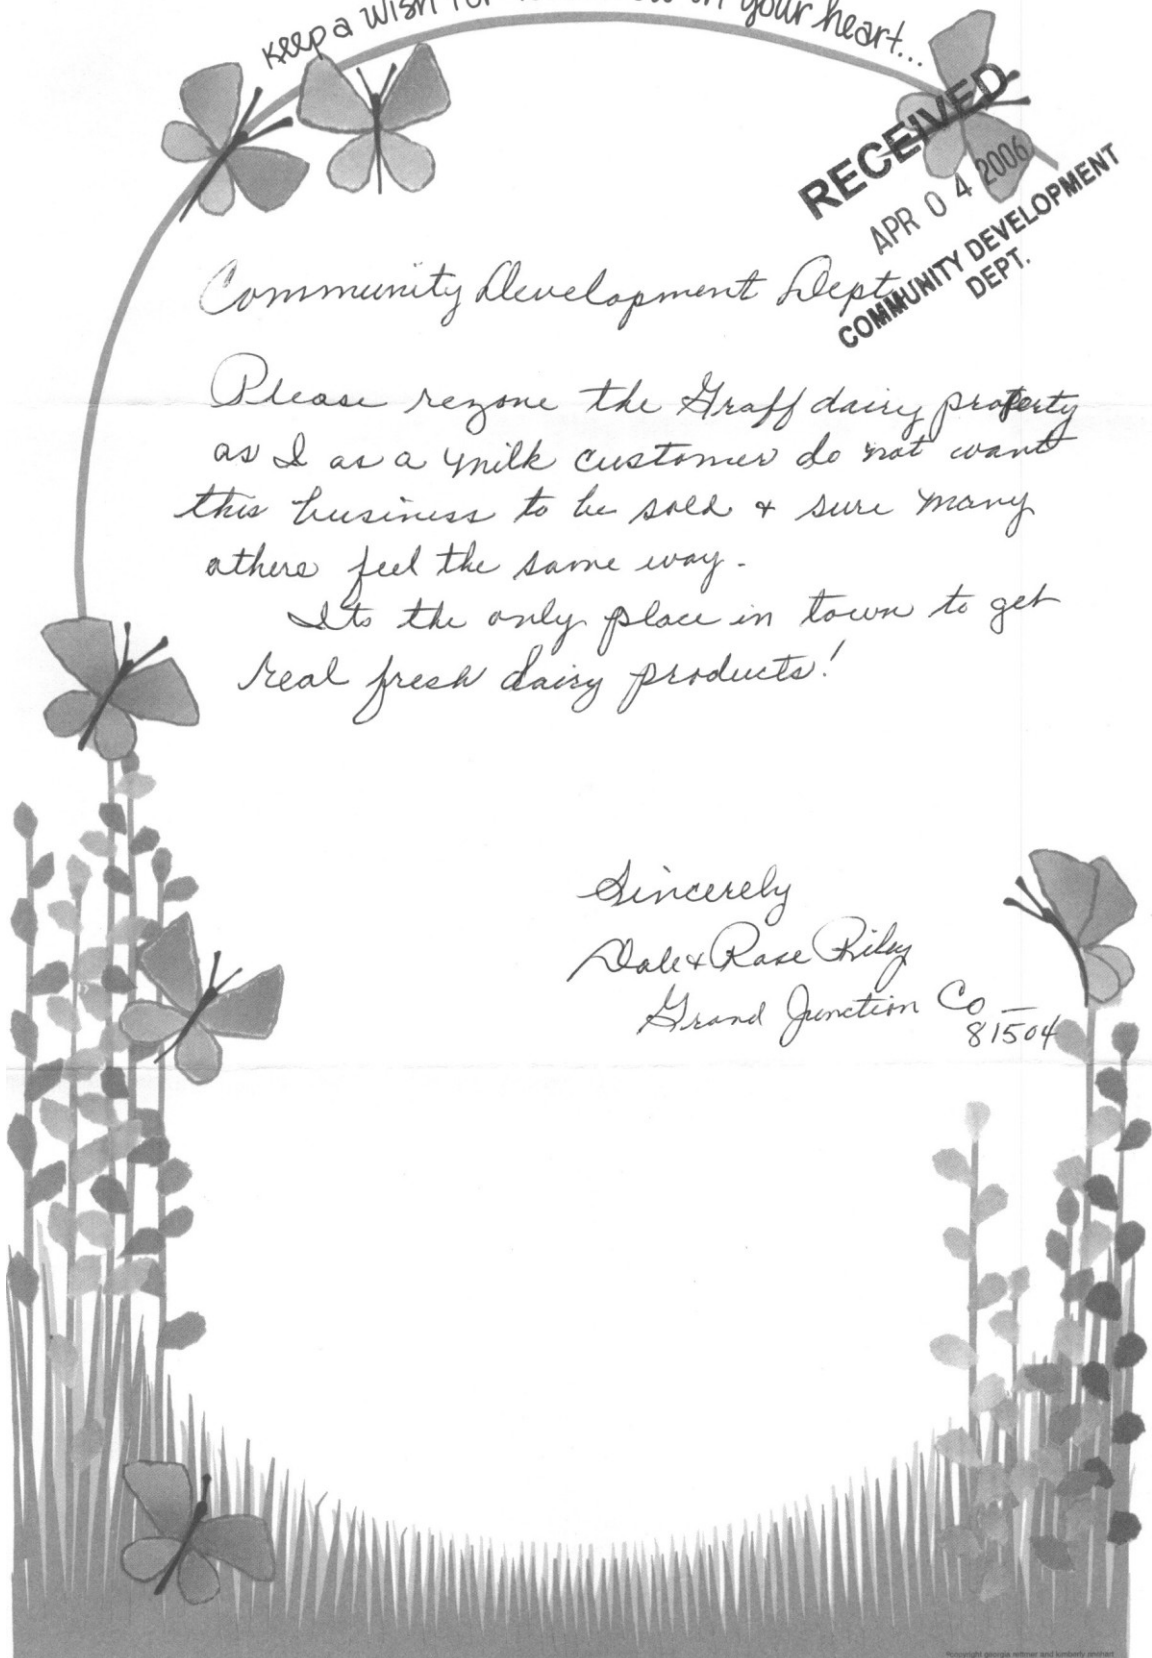 Keep a wish for in your heart...
RECEIVED
APR 04 2006
COMMUNITY DEVELOPMENT
DEPT.
Community Development Dept
Please rezone the Graff dairy property
as I as a milk customer do not want
this business to be sold + sure many
others feel the same way.
Its the only place in town to get
real fresh dairy products!
Sincerely
Dale + Rose Riley
Grand Junction Co —
81504